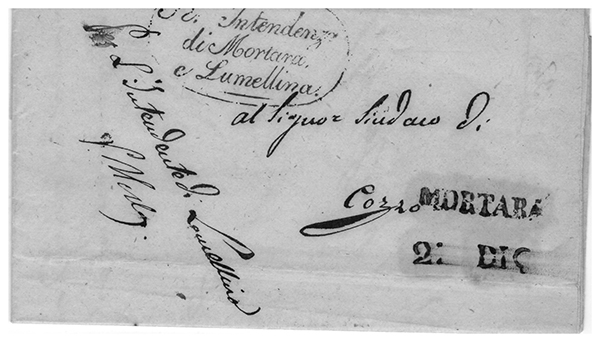 R. Intendenza
di Mortara
e Lumellina.
al Signor Sindaco di
Cozzo
MORTARA
2: DIC
L'Intendente di Lomellina